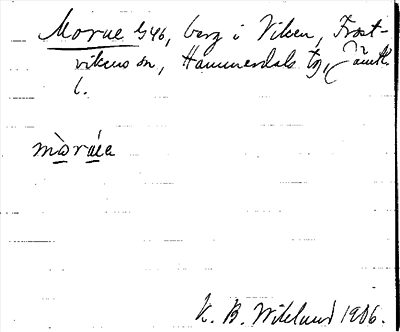 Morue G46, berg i Viken, Frost-
vikens sn, Hammerdals tg, Jämtl.
l.
mòràea
K. B. Wiklund 1906.